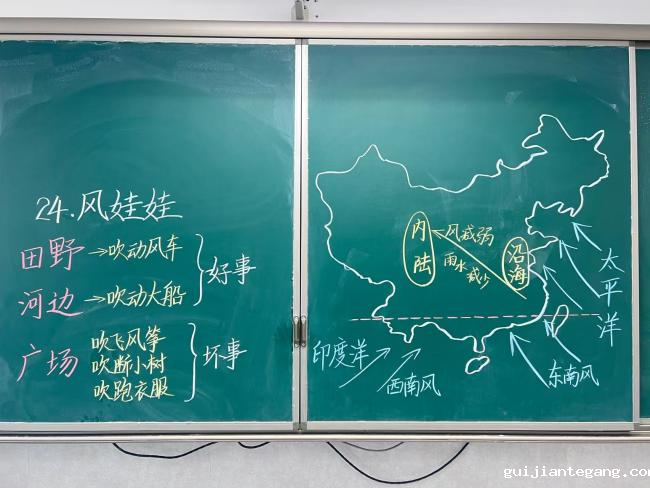 24.风娃娃
田野→吹动风车
河边→吹动大船
好事
广场
吹飞风筝
吹断小树
吹跑衣服
坏事
内陆
风减弱
雨水减少
沿海
太平洋
印度洋
西南风
东南风
guijiantegang.com